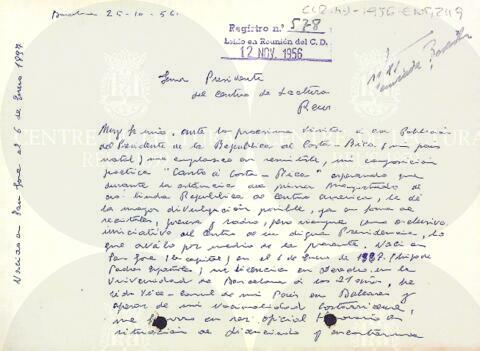 Barcelona 25-10-56.
Registro n.º 578
Leído en Reunión del C.D.
12 NOV. 1956
Señor Presidente
del Centro de Lectura
Reus
Muy Sr. mío: ante la próxima visita a su Población
del Presidente de la República de Costa-Rica, (mi país
natal) me complazco en remitirle, mi composición
poética "Canto a Costa-Rica" esperando que
durante la estancia del primer Magistrado de
mi linda República de Centro América, le dé
la mayor divulgación posible, ya en forma de
recitales, prensa y radio, pero siempre como exclusiva
iniciativa del Centro de su digna Presidencia, lo
que avalo por medio de la presente. Nací en
San José (la capital) en el 6 de Enero 1897. (hijo de
Padres Españoles), me licencié en Derecho en la
Universidad de Barcelona a los 21 años, he
sido Vice-Consul de mi País en Baleares y
apesar de mi nacionalidad costarricense,
me honro en ser oficial Honorario en
situación de diferenciado y encontrarme
Nacido en San José el 6 de Enero 1897